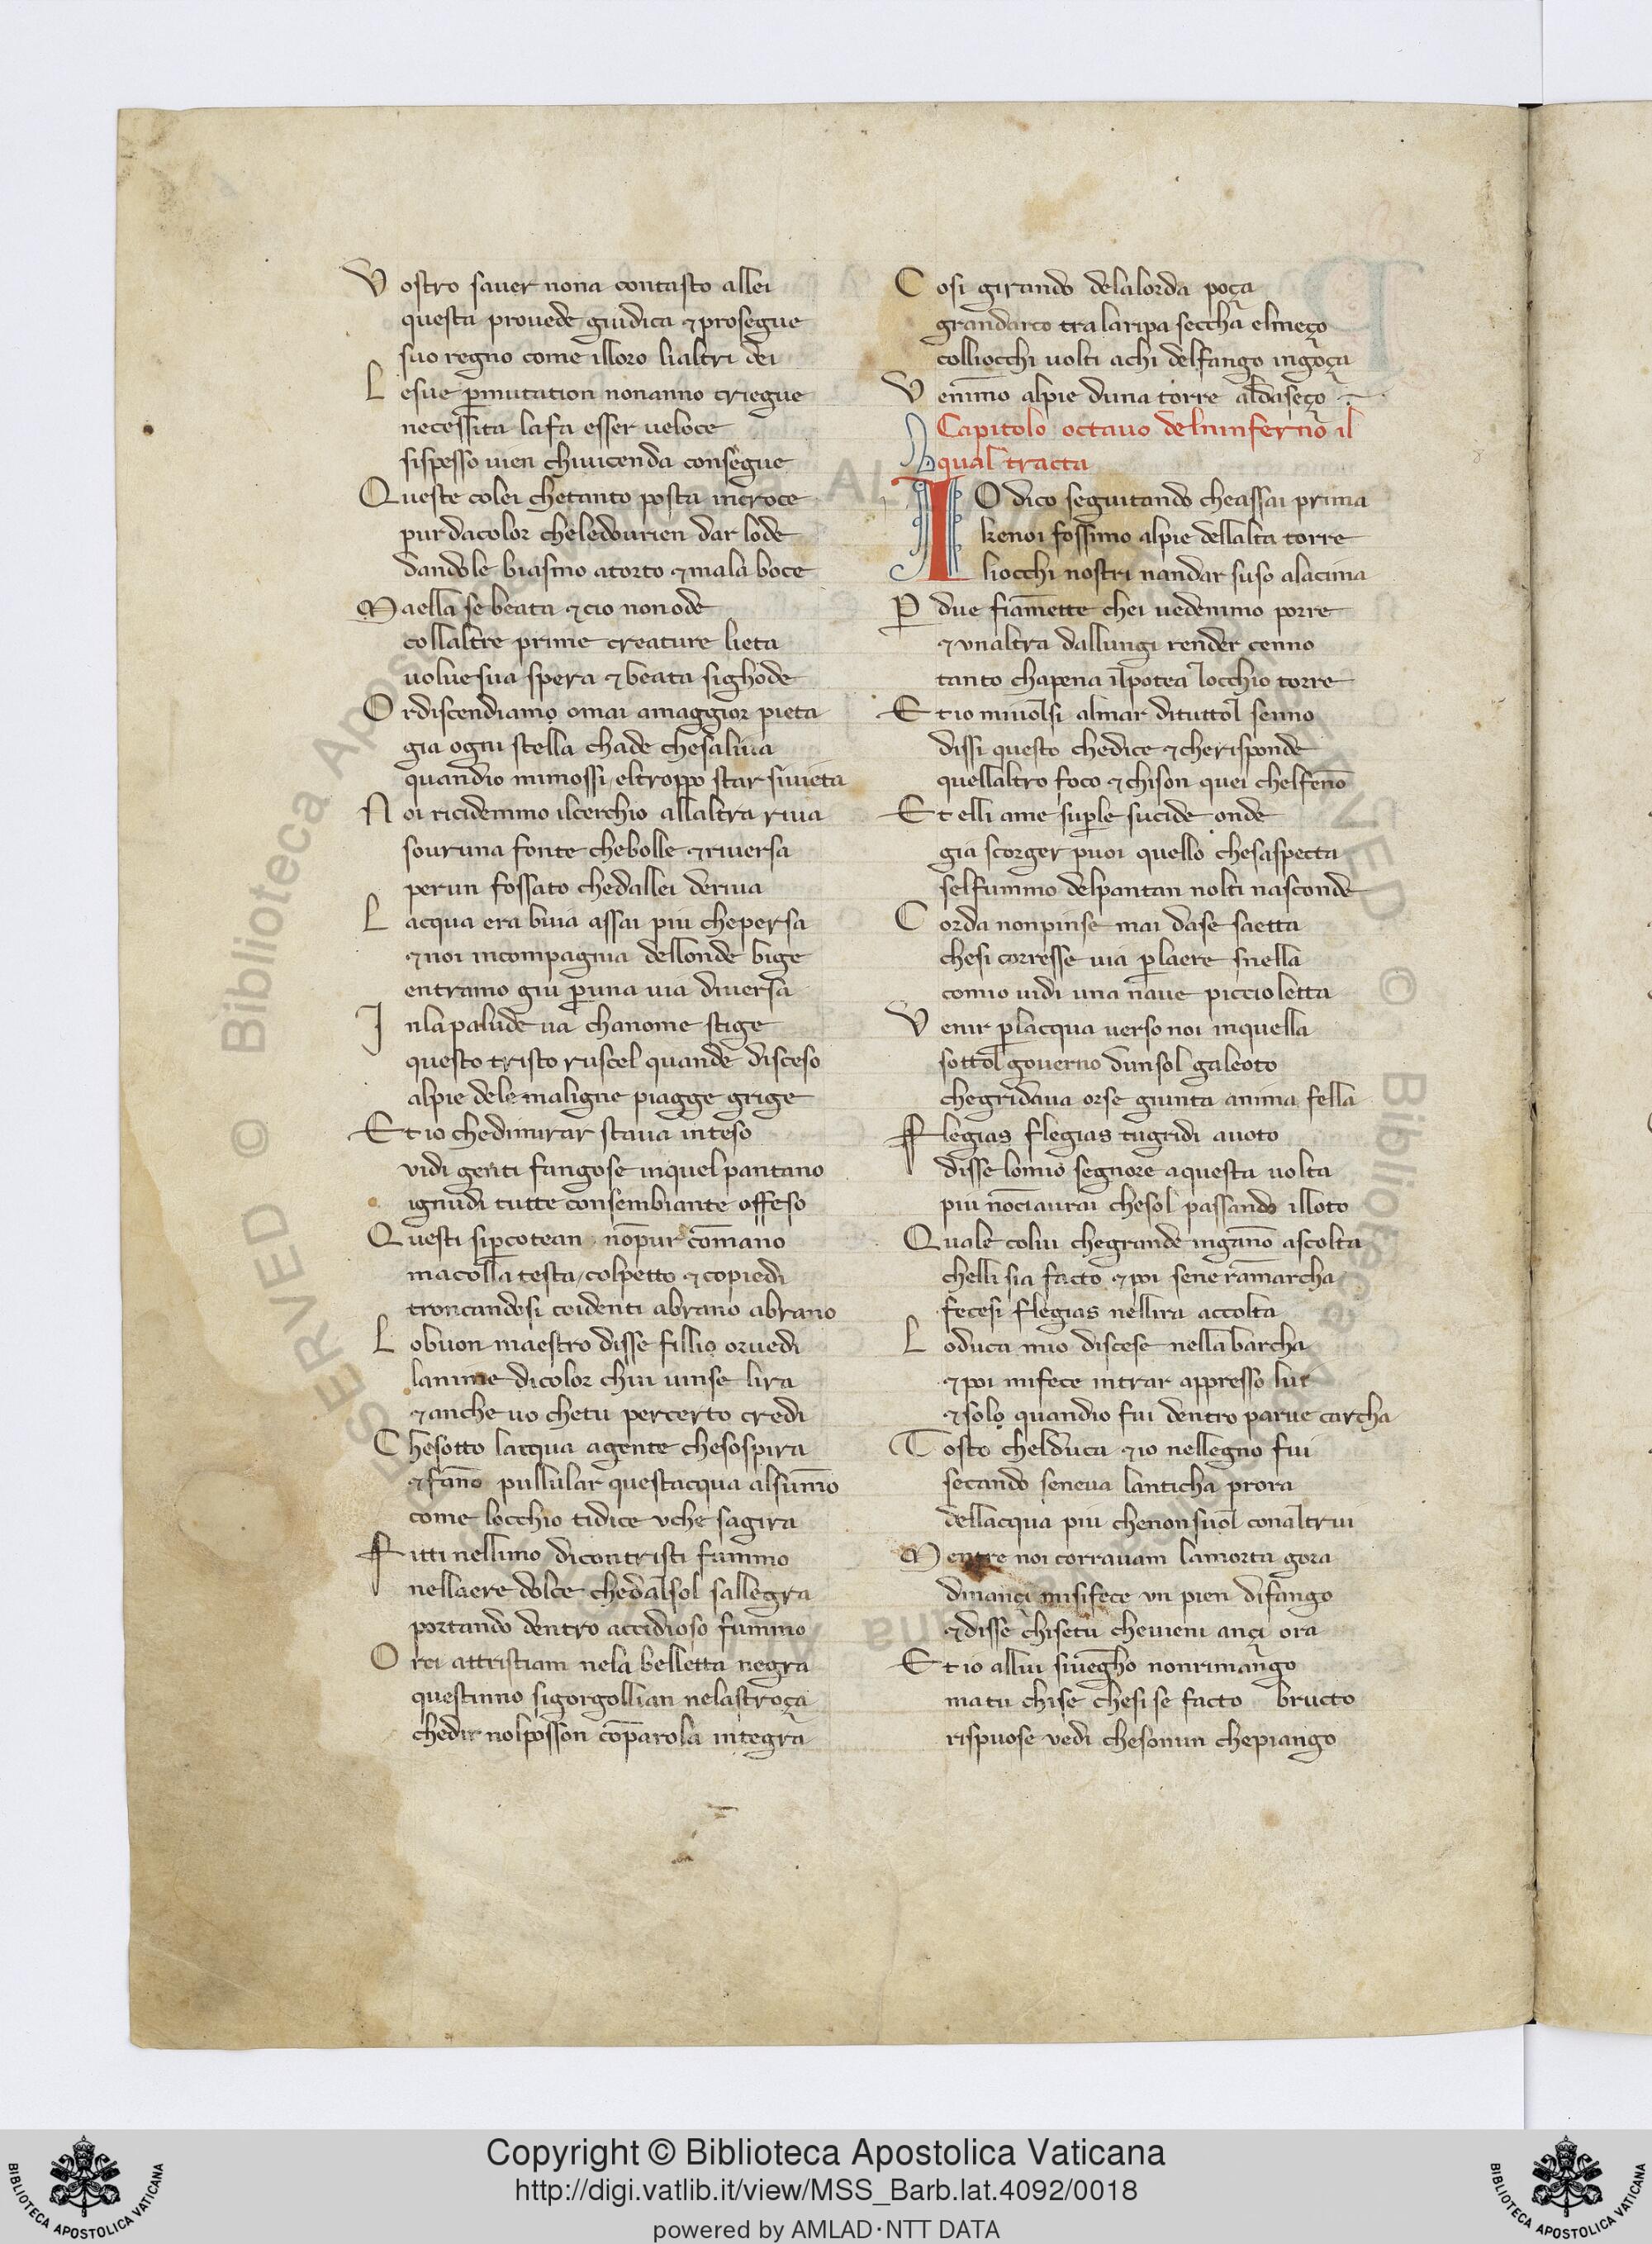 Vostro sauer nona contasto allei
questa prouede giudica ⁊ prosegue
suo regno come illoro lialtri dei
Lesue ꝑmutation nonanno triegue
necessita lafa esser ueloce
sispesso uien chiuicenda consegue
Queste colei chetanto posta incroce
pur dacolor cheledourien dar lode
dandole biasmo atorto ⁊ mala boce
Maella se beata ⁊ cio non ode
collaltre prime creature lieta
uoluesua spera ⁊ beata sighode
Ordiscendiamo omai amaggior pieta
gia ogni stella chade chesaliua
quandio mimossi eltroppo star siuieta
Noi ricidemmo ilcerchio allaltra riua
souruna fonte chebolle ⁊ riuersa
perun fossato chedallei deriua
Lacqua era buia assai piu chepersa
⁊ noi incompagnia dellonde bige
entramo giu ꝑuna uia diuersa
Inlapalude ua chanome stige
questo tristo ruscel quande disceso
alpie dele maligne piagge grige
Et io chedimirar staua inteso
vidi genti fangose inquel pantano
ignudi tutte consembiante offeso
Questi siꝑcotean nōpur cōmano
macolla testa colpetto ⁊ copiedi
troncandosi coidenti abrano abrano
Lobuon maestro disse fillio oruedi
lanime dicolor chui uinse lira
⁊ anche uo chetu percerto credi
Chesotto lacqua agente chesospira
⁊ fāno pullular questacqua alsūmo
come locchio tidice vche sagira
Fitti nellimo dicontristi fummo
nellaere dolce chedalsol sallegra
portando dentro accidioso fummo
Orci attristiam nela belletta negra
questinno sigorgollian nelastroça
chedir nolposson cōparola integra
Cosi girando delalorda poça
grandarco tralaripa seccha elmeço
colliocchi uolti achi delfango ingoça
Venimmo alpie duna torre aldaseço
Capitolo octauo delinferno il
qual tracta
IO dico seguitando cheassai prima
kenoi fossimo alpie dellalta torre
liocchi nostri nandar suso alacima
P due fiāmette chei uedemmo porre
⁊ vnaltra dallungi render cenno
tanto chapena ilpotea locchio torre
Et io miuolsi almar dituttol senno
dissi questo chedice ⁊ cherisponde
quellaltro foco ⁊ chison quei chelfenō
Et elli ame suꝑle sucide onde
gia scorger puoi quello chesaspecta
selfummo delpantan nolti nasconde
Corda nonpinse mai dase saetta
chesi corresse uia ꝑlaere snella
comio uidi una naue piccioletta
Venir ꝑlacqua uerso noi inquella
sottol gouerno dunsol galeoto
chegridaua orse giunta anima fella
Flegias flegias tugridi auoto
disse lomio segnore aquesta uolta
piu nociaurai chesol passando illoto
Quale colui chegrande ingāno ascolta
chelli sia facto ⁊ poi sene ramarcha
fecesi flegias nellira accolta
Loduca mio discese nella barcha
⁊ poi mifece intrar appresso lui
⁊ solo quandio fui dentro parue carcha
Tosto chelduca ⁊ io nellegno fui
secando seneua lanticha prora
dellacqua piu chenonsuol conaltrui
Mentre noi corrauam lamorta gora
dinançi misifece vn pien difango
⁊ disse chisetu cheuieni ançi ora
Et io allui siuegho nonrimango
ma tu chise chesise facto bructo
rispuose vedi chesonun chepiango
Copyright © Biblioteca Apostolica Vaticana
http://digi.vatlib.it/view/MSS_Barb.lat.4092/0018
powered by AMLAD·NTT DATA
BIBLIOTECA APOSTOLICA VATICANA
BIBLIOTECA APOSTOLICA VATICANA